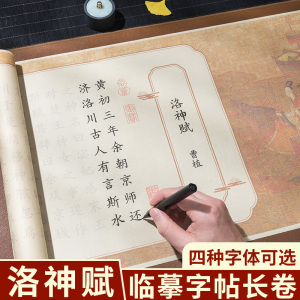 洛神赋
曹植
黄初三年余朝京师还
济洛川古人有言斯水
四种字体可选
洛神赋
临摹字帖长卷